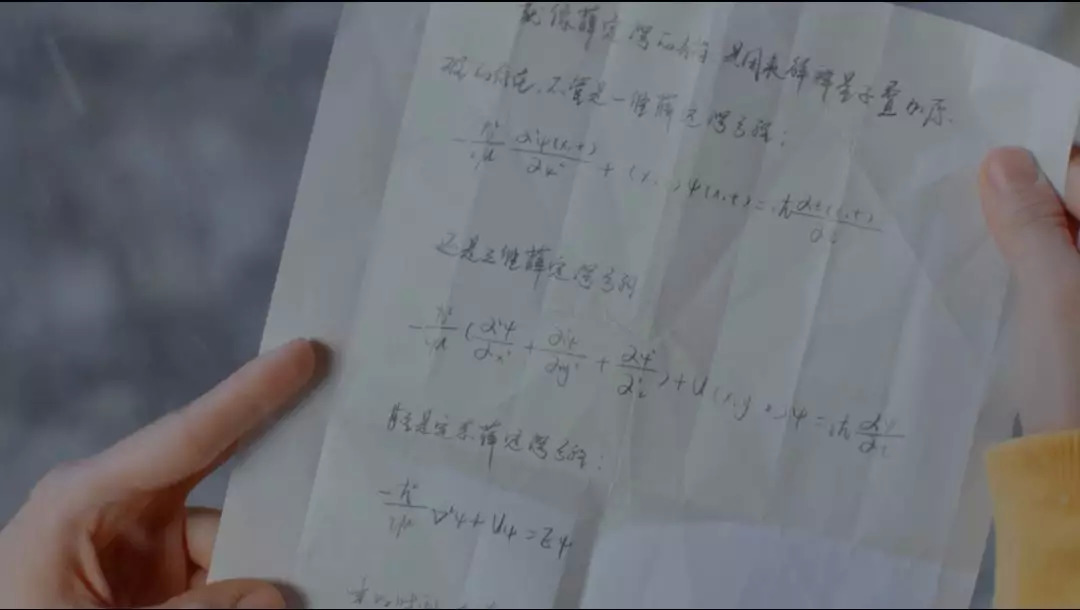 就像薛定谔的方程 是用来解释量子叠加原
理的存在,不管是一维薛定谔方程:
-ħ²/2μ ∂²ψ(x,t)/∂x² + U(x,t)ψ(x,t) = iħ ∂ψ(x,t)/∂t
还是三维薛定谔方程
-ħ²/2μ (∂²ψ/∂x² + ∂²ψ/∂y² + ∂²ψ/∂z²) + U(x,y,z)ψ = iħ ∂ψ/∂t
或者是定态薛定谔方程:
-ħ²/2μ ∇²ψ + Uψ = Eψ